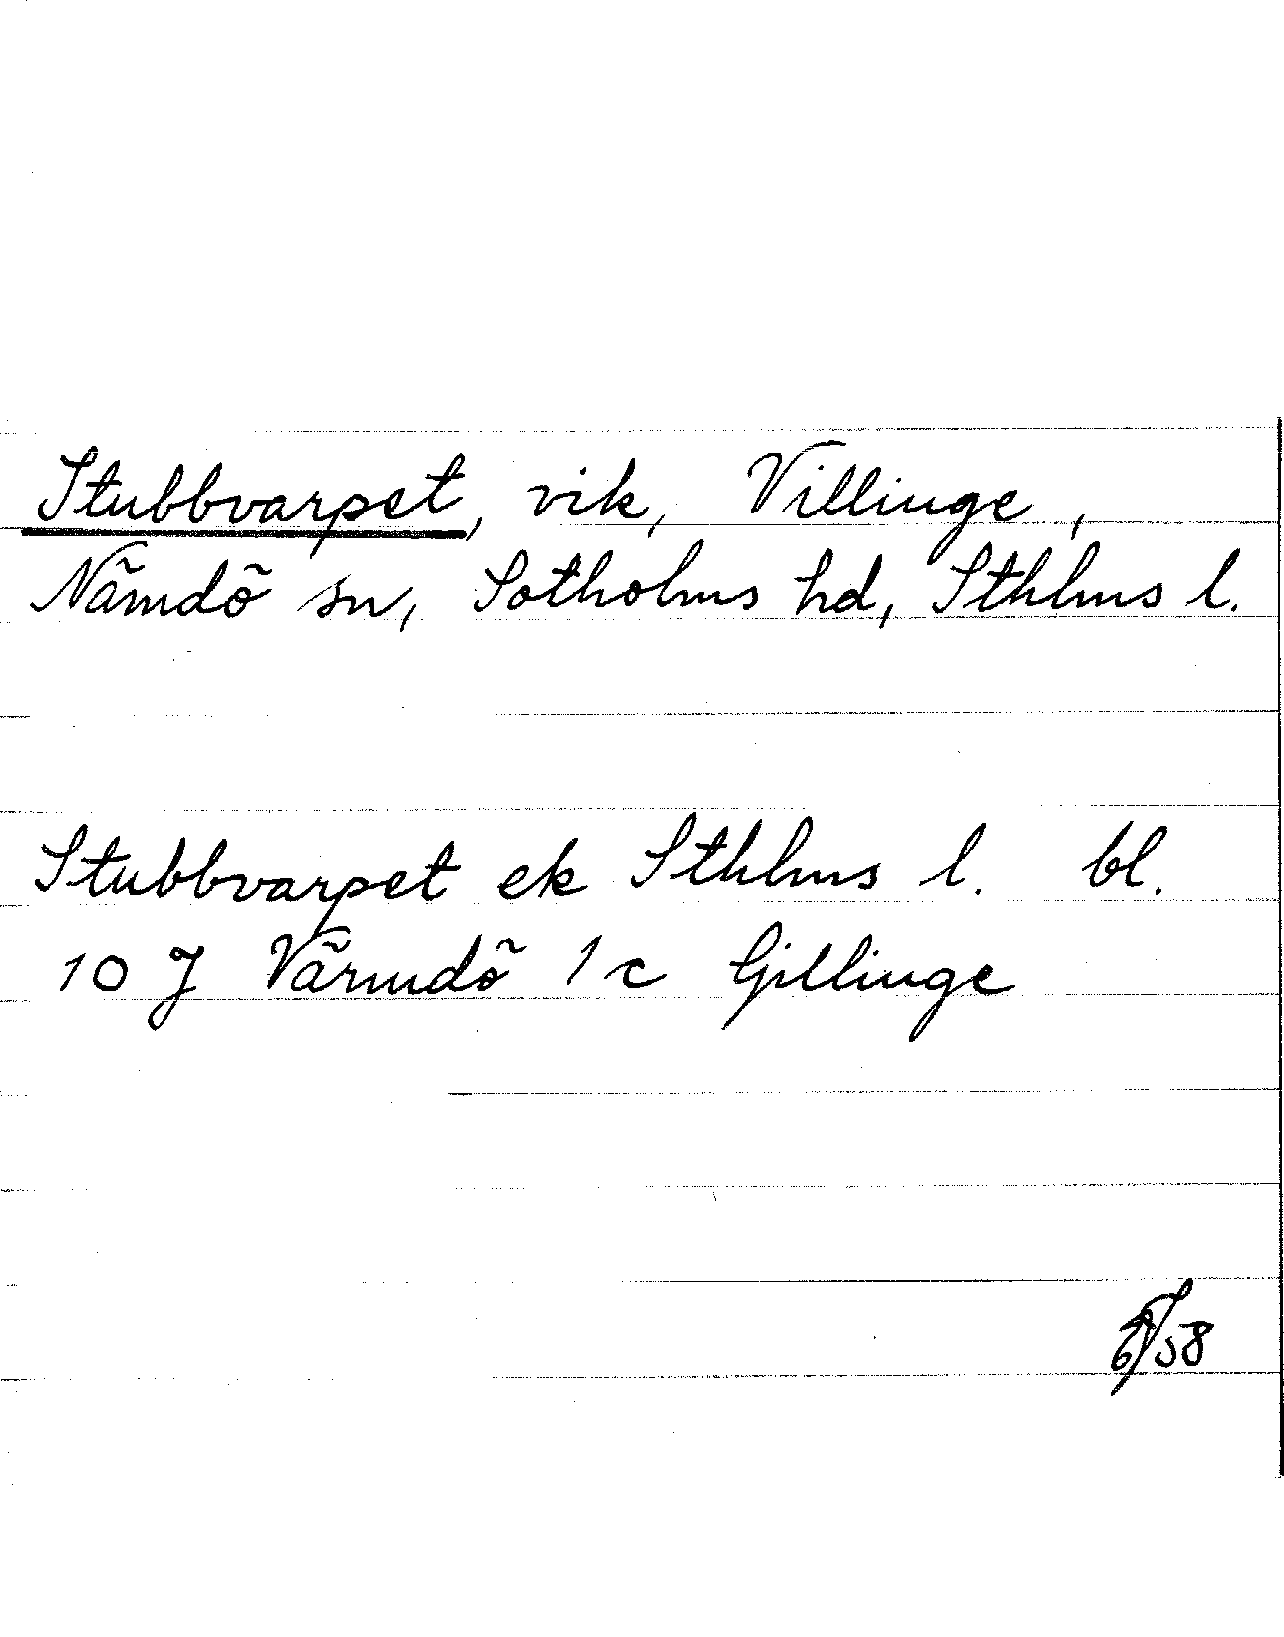 Stubbvarpet, vik, Villinge,
Nämdö sn, Sotholms hd, Sthlms l.
Stubbvarpet ek Sthlms l. bl.
10 J Värmdö 1 c Gillinge